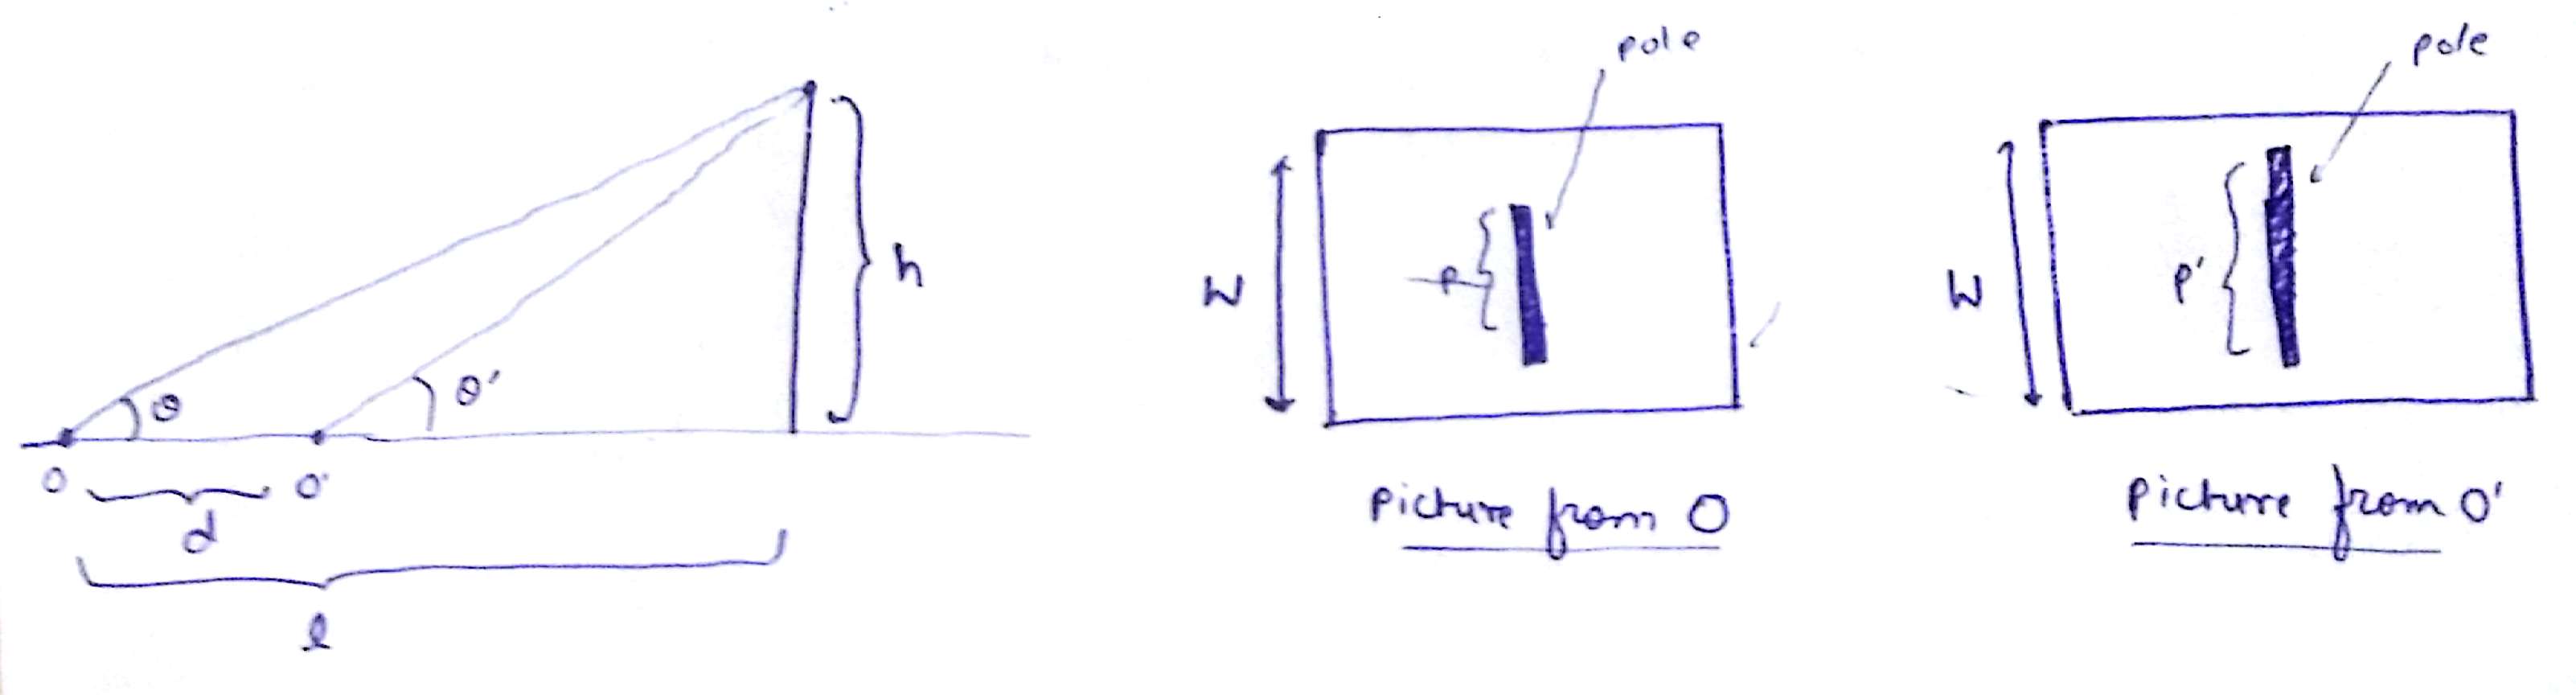 θ
θ'
h
O
O'
d
l
pole
W
P
picture from O
pole
W
P'
picture from O'